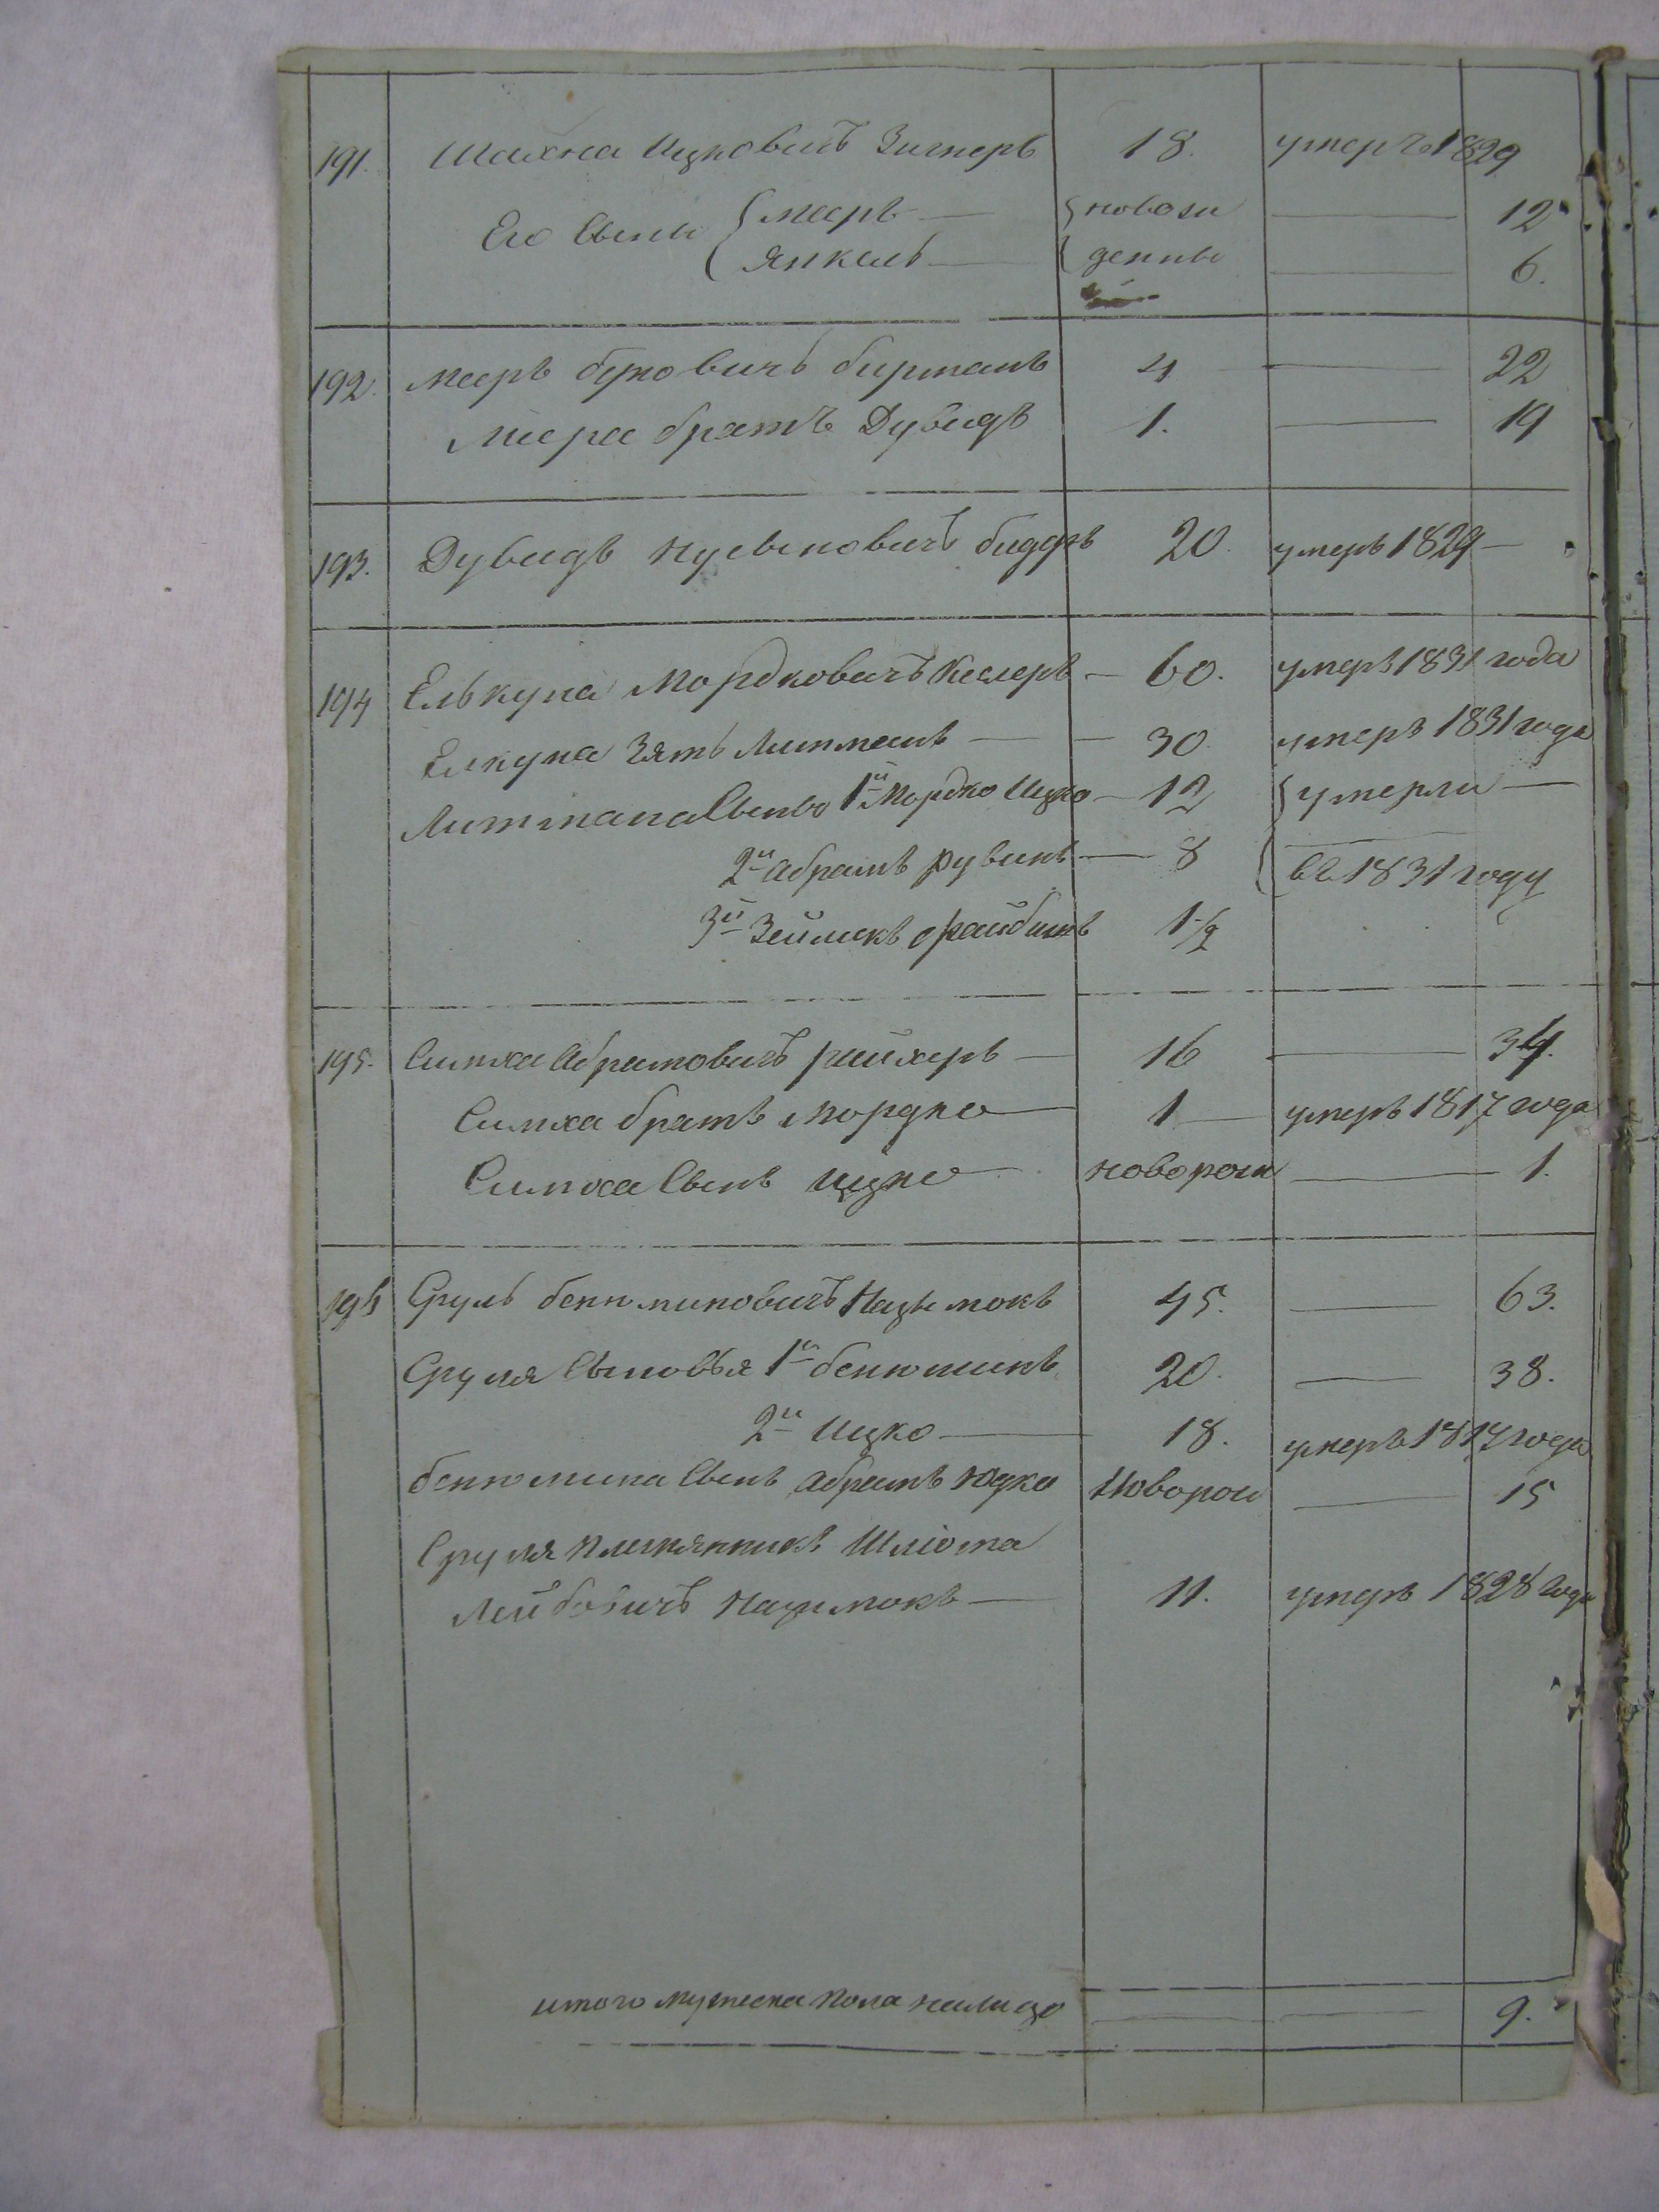 191. Шахна Ицковичъ Зигнеръ 18. умеръ 1829
Его Сыны { Мееръ — { новоза — 12
{ Янкель — { денны — 6.
192. Мееръ берковичъ бирманъ 4 — 22
Меера братъ Дувидъ 1. — 19
193. Дувидъ Нусыновичъ 20. умеръ 1829 —
194 Елькуна Мордковичъ Кеслеръ — 60. умеръ 1831 года
Елкуна Зять Литманъ — 30. умеръ 1831 года
Литмана Сыны 1й Мордко Ицко — 12 { умерли —
2й Абрамъ Рувинъ — 8 { въ 1831 году
3й Зейликъ 1 1/2
195. Симха Абрамовичъ райхеръ — 16 — 34.
Симха братъ Мордко — 1 — умеръ 1817 года
Симха Сынъ Ицко — новорож — 1.
196 Сруль бенюминовичъ Нацымокъ 45. — 63.
Сруля Сыновья 1й бенюминъ 20. — 38.
2й Ицко — 18. умеръ 1817 года
бенюмина Сынъ Абрамъ Юдко Новорож — 15
Сруля племянникъ Шліома
Лейбовичъ Нацымокъ — 11. умеръ 1828 года
итого мужеска пола налицо — 9.